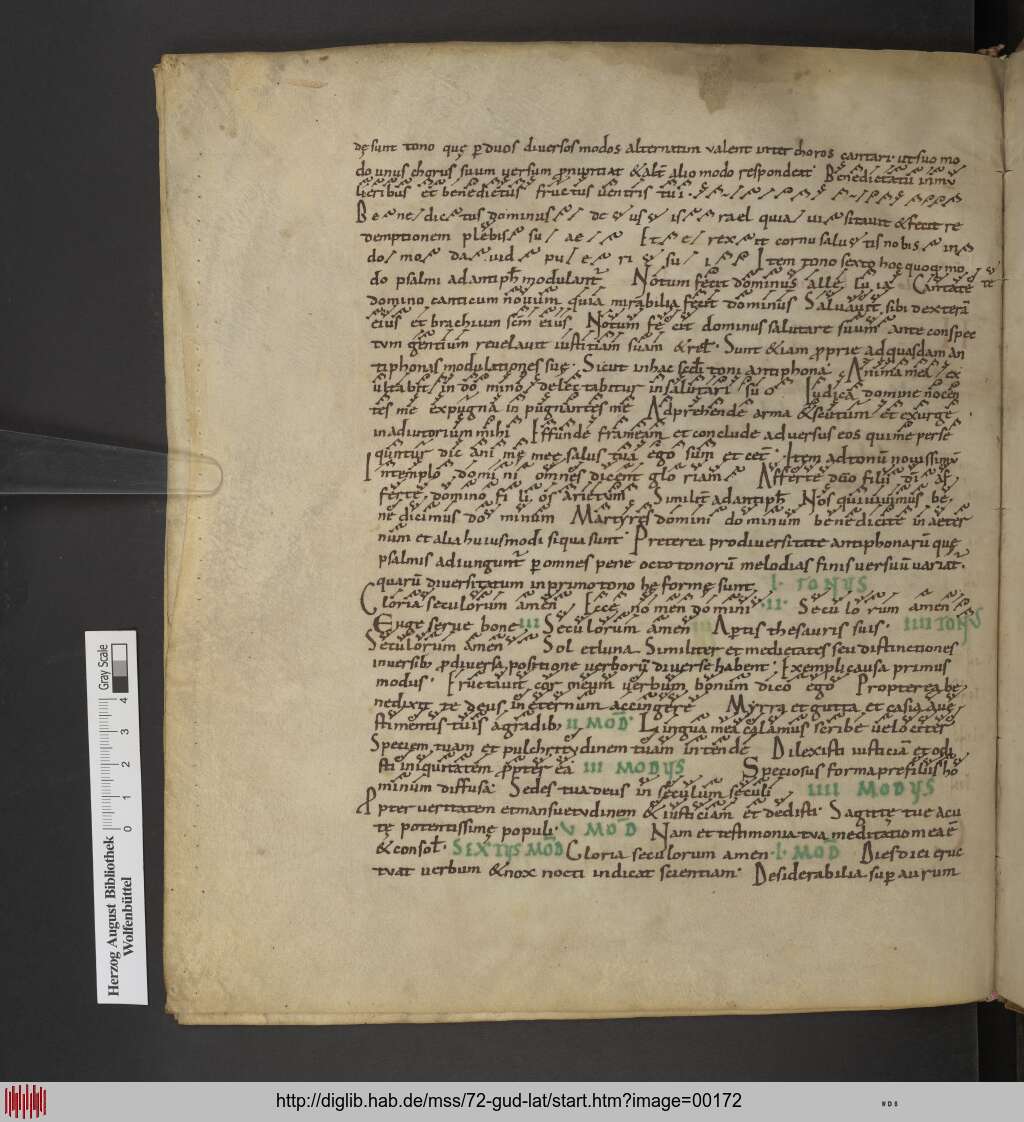 dę sunt tono quę p duos diversos modos alternatim valent inter choros cantari. ut suo mo
do unus chorus suum versum pronuntiat & alt alio modo respondeat. Benedicta tu in mu
lieribus et benedictus fructus ventris tui.
Benedictus dominus deus israel quia visitavit & fecit re
demptionem plebis suae Et erexit cornu salutis nobis in
domo david pueri sui Item tono sexto hoc quoq; mo
do psalmi ad antiph modulant Notum fecit dominus alleluia Cantate
domino canticum novum quia mirabilia fecit dominus Salvavit sibi dextera
eius et brachium scm eius Notum fecit dominus salutare suum ante conspec
tum gentium revelavit iustitiam suam & rel. Sunt & iam proprie ad quasdam an
tiphonas modulationes suę. Sicut in hac scdi toni antiphona. Anima mea ex
ultabit in dno mino delectabitur in salutari suo Iudica domine nocen
tes me expugna in pugnantes me Adprehende arma & scutum et exurge
in adiutorium mihi Effunde frameam et conclude adversus eos qui me perse
quuntur dic anime mee salus tua ego sum et cet. Item ad tonu novissimu
In templo domini omnes dicent gloriam Afferte dno filii di af
ferte domino filios arietum Similit ad antiph Nos qui vivimus be
nedicimus dominum Martyres domini dominum benedicite in aeter
num et alia huiusmodi si qua sunt. Preterea pro diversitate antiphonaru quę
psalmis adiungunt p omnes pene octo tonoru melodias finis versuu variat.
quaru diversitatum in primo tono hę formę sunt I. TONVS
Gloria seculorum amen Ecce nomen domini II. Seculorum amen
Euge serve bone III Seculorum amen Aptis thesauris suis. IIII TONVS
Seculorum amen Sol et luna Similiter et medietates seu distinctiones
in versib; p diversa positione verboru diverse habent. Exempli causa primus
modus. Eructavit cor meum verbum bonum dico ego Propterea be
nedixit te deus in eternum accingere Myrra et gutta et casia a ves
timentis tuis a gradib; II MOD Lingua mea calamus scribe velociter
Speciem tuam et pulchritudinem tuam intende Dilexisti iusticia et odi
sti iniquitatem propter ea III MODVS Speciosus forma pre filiis ho
minum diffusa Sedes tua deus in seculum seculi IIII MODVS
Ppter veritatem et mansuetudinem & iusticiam et dedisti. Sagitte tue acu
tę potentissime populi. V MOD Nam et testimonia tua meditatio mea e
& consol. SEXTVS MOD Gloria seculorum amen. I. MOD Dies diei eruc
tuat verbum & nox nocti indicat scientiam. Desiderabilia sup aurum
Herzog August Bibliothek
Wolfenbüttel
0 1 2 3 4
Gray Scale
http://diglib.hab.de/mss/72-gud-lat/start.htm?image=00172
WDB